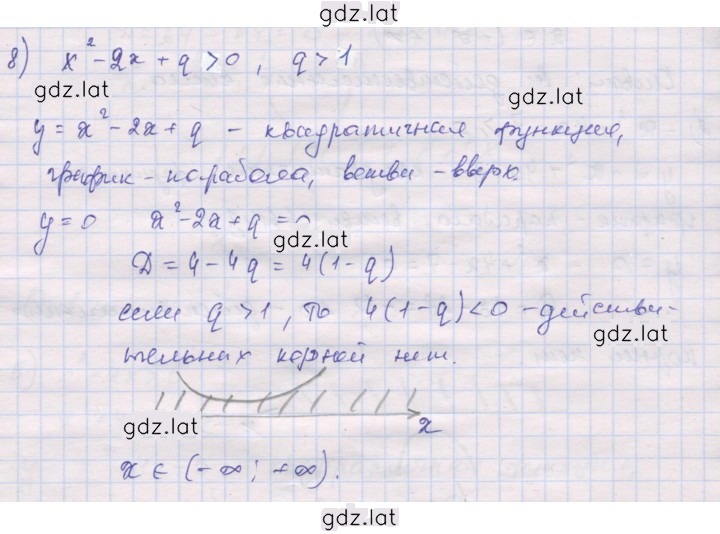 gdz.lat
8) x² - 2x + q > 0, q > 1
gdz.lat
gdz.lat
y = x² - 2x + q - квадратичная функция,
график - парабола, ветви - вверх.
y = 0 x² - 2x + q = 0
gdz.lat
D = 4 - 4q = 4(1 - q)
если q > 1, то 4(1 - q) < 0 - действи-
gdz.lat
тельных корней нет.
gdz.lat
x
x ∈ (-∞; +∞).
gdz.lat